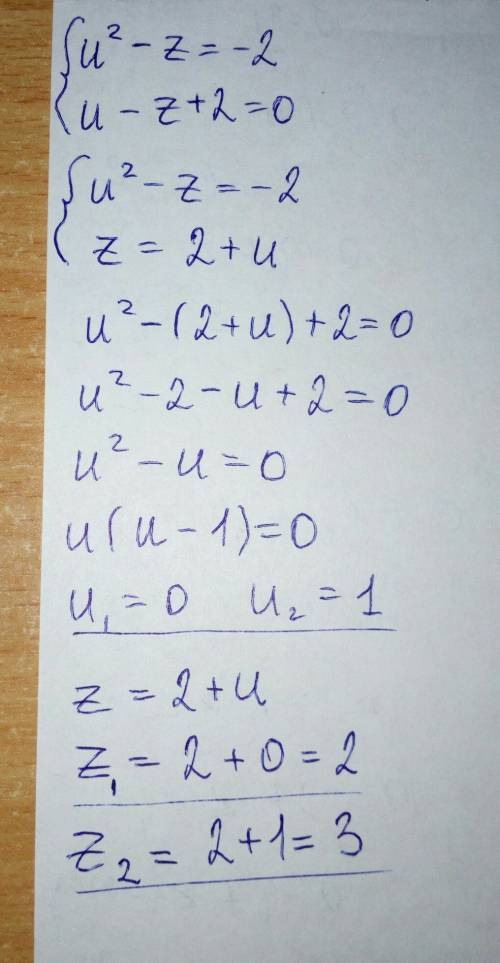 {u² - z = -2
u - z + 2 = 0
{u² - z = -2
z = 2 + u
u² - (2 + u) + 2 = 0
u² - 2 - u + 2 = 0
u² - u = 0
u(u - 1) = 0
u₁ = 0 u₂ = 1
z = 2 + u
z₁ = 2 + 0 = 2
z₂ = 2 + 1 = 3